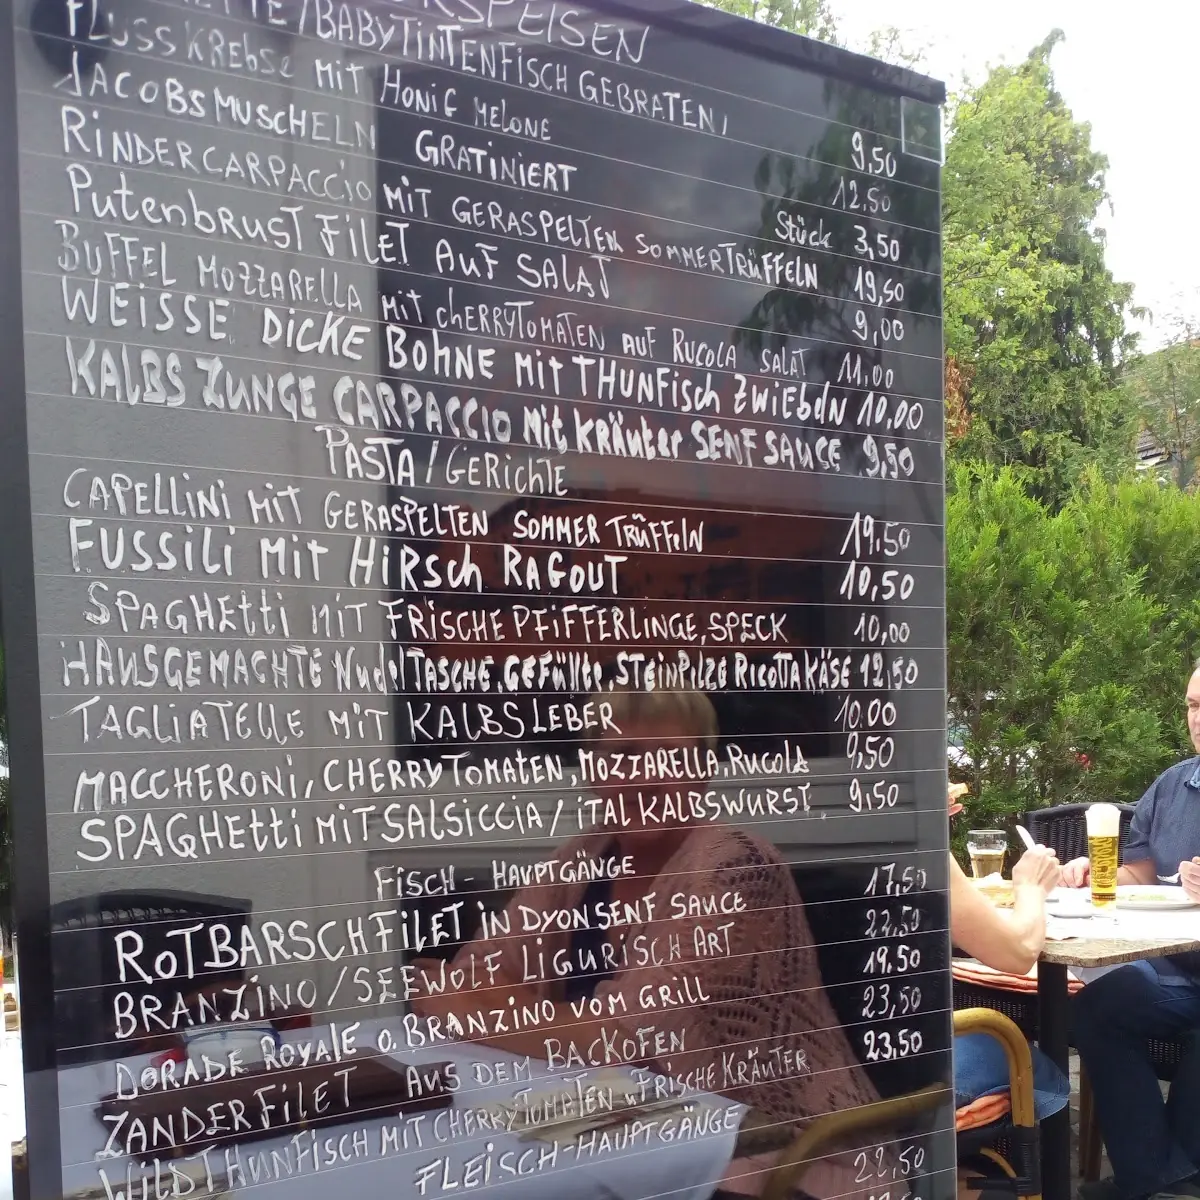 SPEISEN
/BABYTINTENFISCH GEBRATEN,
FLUSSKREBSE MIT HONIG MELONE 9,50
JACOBSMUSCHELN GRATINIERT 12,50
Stück 3,50
RINDERCARPACCIO MIT GERASPELTEN SOMMERTRÜFFELN 19,50
PUTENBRUST FILET AUF SALAT 9,00
BUFFEL MOZZARELLA MIT CHERRYTOMATEN AUF RUCOLA SALAT 11,00
WEISSE DICKE BOHNE MIT THUNFISCH ZWIEBELN 10,00
KALBS ZUNGE CARPACCIO MIT KRÄUTER SENF SAUCE 9,50
PASTA/GERICHTE
CAPELLINI MIT GERASPELTEN SOMMER TRÜFFELN 19,50
FUSSILI MIT HIRSCH RAGOUT 10,50
SPAGHETTI MIT FRISCHE PFIFFERLINGE, SPECK 10,00
HAUSGEMACHTE NUDELTASCHE, GEFÜLLTE, STEINPILZE RICOTTA KÄSE 12,50
TAGLIATELLE MIT KALBSLEBER 10.00
MACCHERONI, CHERRYTOMATEN, MOZZARELLA, RUCOLA 9,50
SPAGHETTI MIT SALSICCIA/ITAL KALBSWURST 9,50
FISCH-HAUPTGÄNGE
ROTBARSCHFILET IN DYONSENF SAUCE 17,50
BRANZINO/SEEWOLF LIGURISCH ART 22,50
DORADE ROYALE O. BRANZINO VOM GRILL 19.50
ZANDERFILET AUS DEM BACKOFEN 23,50
WILDTHUNFISCH MIT CHERRYTOMATEN U FRISCHE KRÄUTER 23,50
FLEISCH-HAUPTGÄNGE
22,50